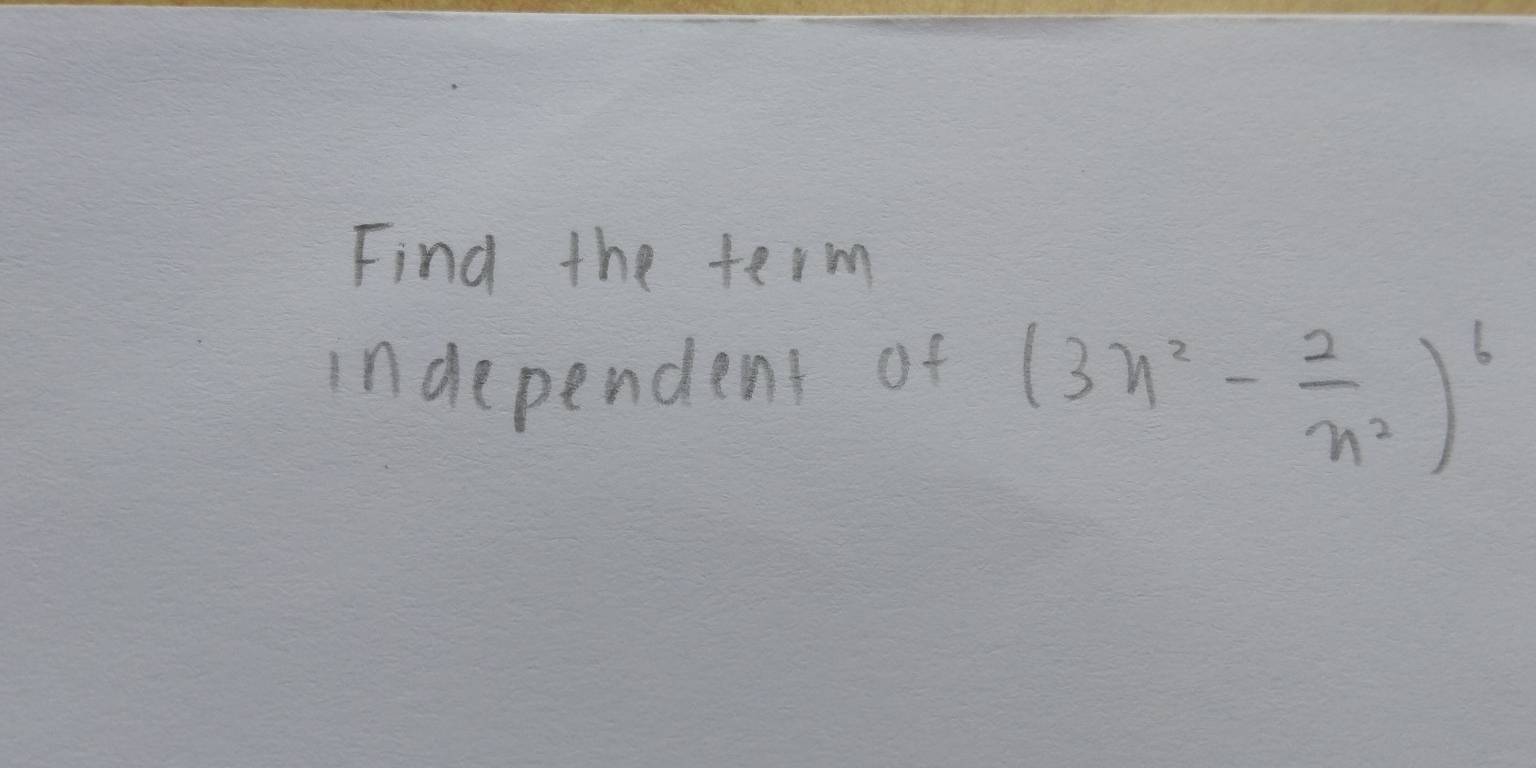 Find the term
independent of (3x² - 2/x²)⁶